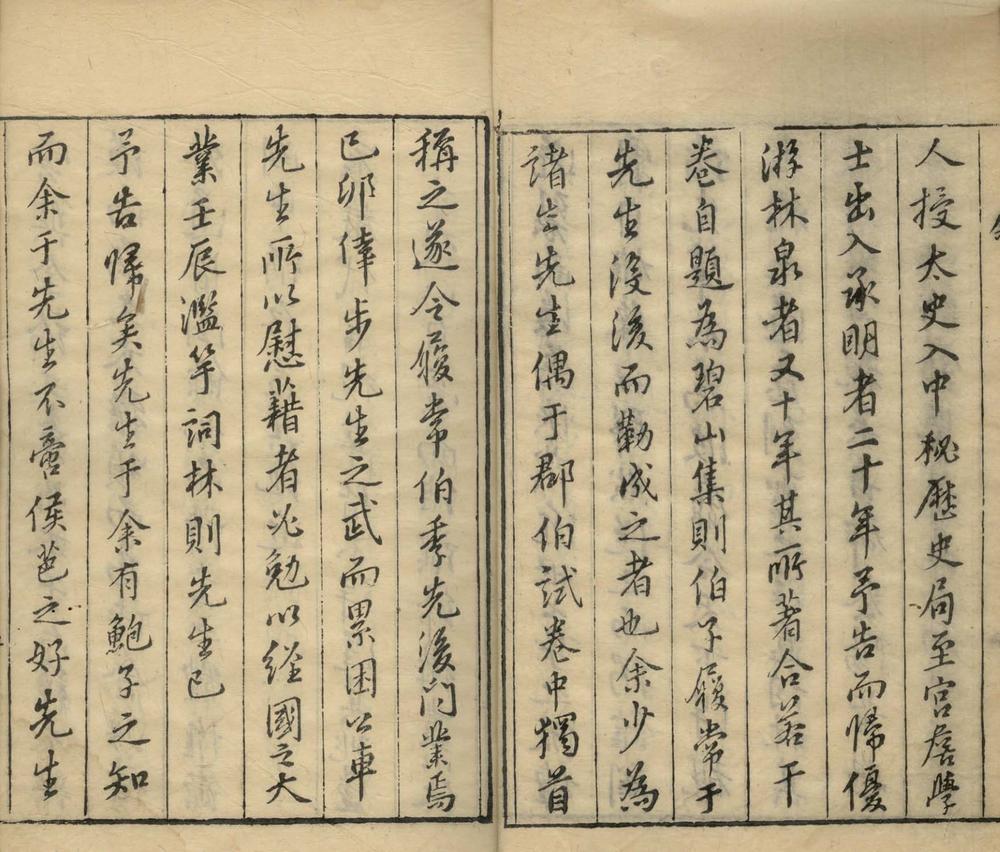 人授太史入中秘歷史局至宮詹學
士出入承明者二十年予告而歸優
游林泉者又十年其所著合若干
卷自題為碧山集則伯子履常于
先生沒後而勒成之者也余少為
諸生先生偶于郡伯試卷中獨首
稱之遂令履常伯季先後門業焉
己卯倖步先生之武而累困公車
先生所以慰藉者必勉以經國之大
業壬辰濫竽詞林則先生已
予告歸矣先生于余有鮑子之知
而余于先生不啻侯芭之好先生